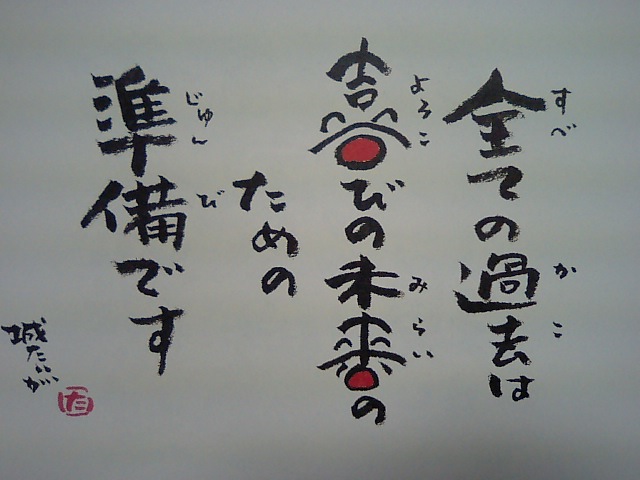 全ての過去は
すべ
かこ
喜びの未来の
よろこ
みらい
ための
準備です
じゅん
び
城たいが